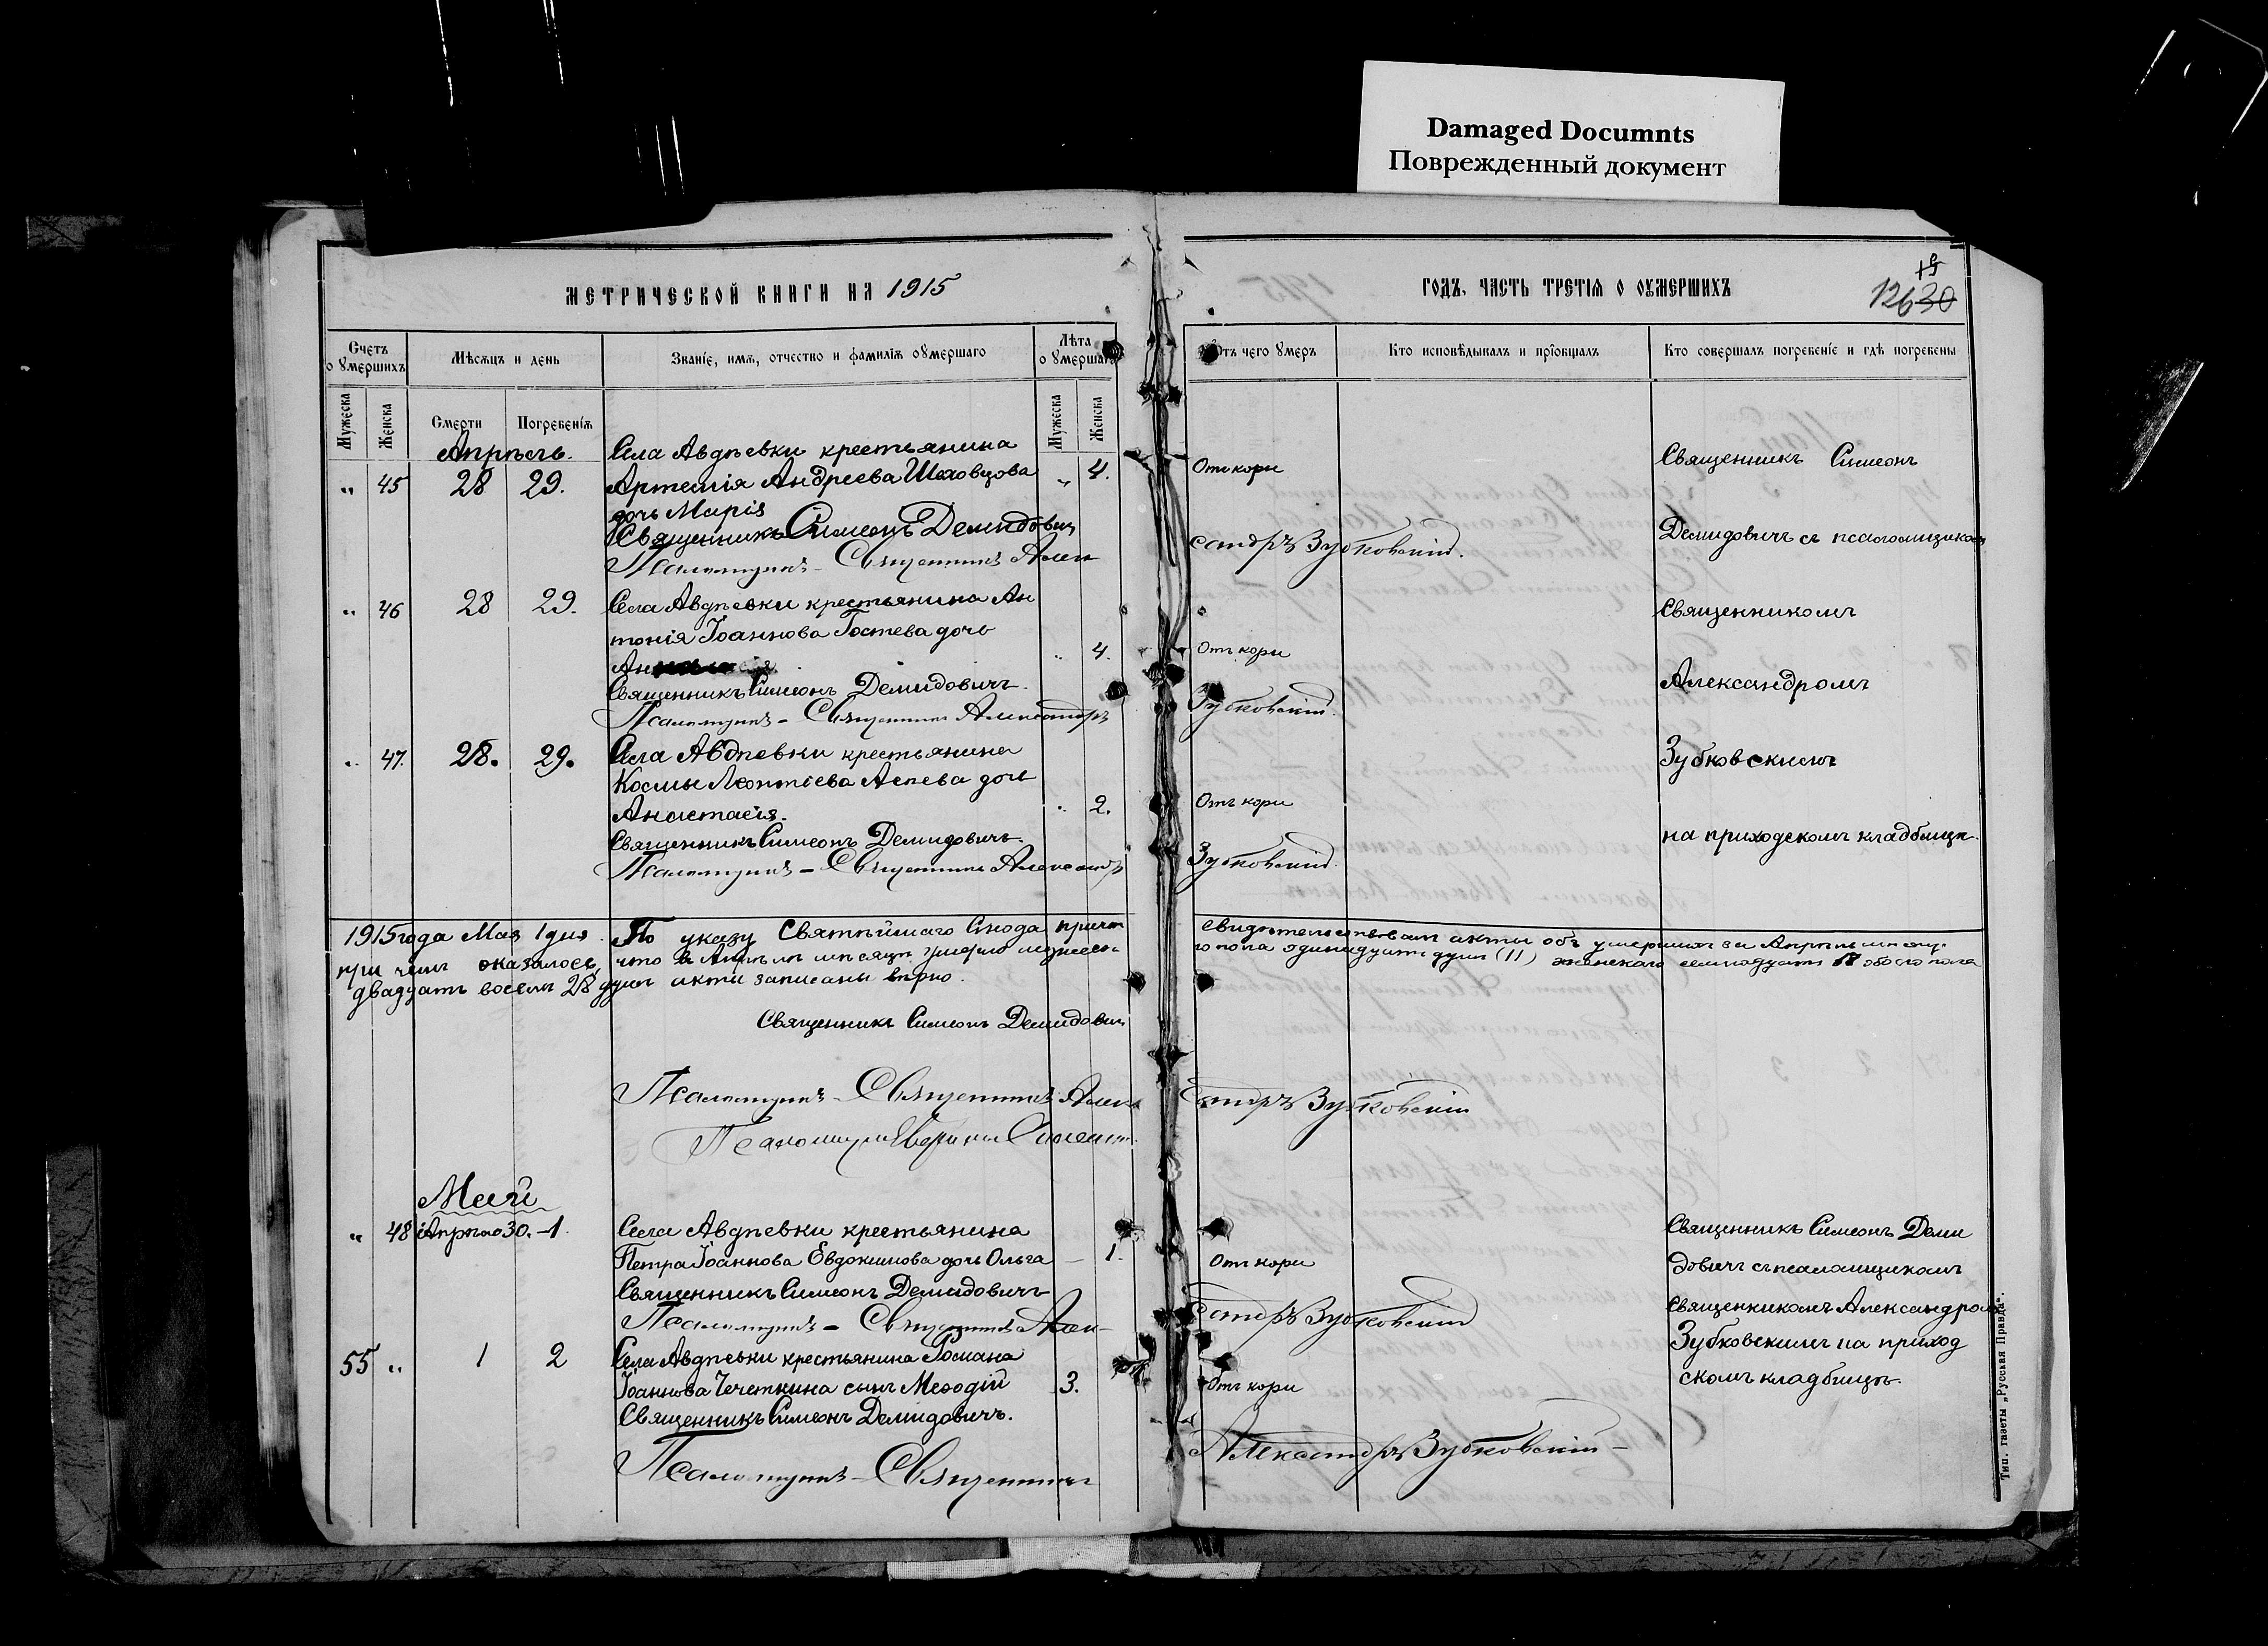 Damaged Documnts
Поврежденный документ
МЕТРИЧЕСКОЙ КНИГИ НА 1915
ГОДЪ, ЧАСТЬ ТРЕТІЯ О ОУМЕРШИХЪ
19
126 30
Счетъ оумершихъ
Мѣсяцъ и день
Званіе, имя, отчество и фамилія оумершаго
Лѣта оумершаго
Отъ чего умеръ
Кто исповѣдывалъ и пріобщалъ
Кто совершалъ погребеніе и гдѣ погребены
Мужеска
Женска
Смерти
Погребенія
Мужеска
Женска
Апрѣль.
Села Авдѣевки крестьянина
" 45 28 29. Артемія Андреева Шаховцова " 4. Отъ кори
дочь Марія
Священникъ Симеонъ Демидовичъ
Псаломщикъ - Священникъ Алек
сандръ Зубковскій.
" 46 28 29. Села Авдѣевки крестьянина Ан
тонія Іоаннова Гостева дочь
" 4. Отъ кори
Священникъ Симеонъ Демидовичъ.
Псаломщикъ - Священникъ Александръ
Зубковскій.
" 47. 28. 29. Села Авдѣевки крестьянина
Космы Леонтіева Аспева дочь
Анастасія. " 2. Отъ кори
Священникъ Симеонъ Демидовичъ.
Псаломщикъ - Священникъ Александръ
Зубковскій.
Священникъ Симеонъ
Демидовичъ съ псаломщикомъ
Священникомъ
Александромъ
Зубковскимъ
на приходскомъ кладбищѣ.
1915 года Мая 1 дня. По указу Святѣйшаго Сѵнода причтъ свидѣтельствовалъ акты объ умершихъ за Апрѣль мѣсяцъ
при чемъ оказалось, что въ Апрѣлѣ мѣсяцѣ умерло мужеска го пола одинадцать душъ (11) женскаго семнадцать 17 обоего пола
двадцать восемь 28 душъ акты записаны вѣрно.
Священникъ Симеонъ Демидовичъ
Псаломщикъ - Священникъ Алек
сандръ Зубковскій
Псаломщикъ
Май
" 48 Апрѣля 30. - 1. Села Авдѣевки крестьянина
Петра Іоаннова Евдокимова дочь Ольга - 1. Отъ кори
Священникъ Симеонъ Демидовичъ
Псаломщикъ - Священникъ Алек-
сандръ Зубковскій
55 " 1 2 Села Авдѣевки крестьянина Романа
Іоаннова Чечеткина сынъ Меѳодій 3. Отъ кори
Священникъ Симеонъ Демидовичъ.
Псаломщикъ - Священникъ
Александръ Зубковскій -
Священникъ Симеонъ Деми
довичъ съ псаломщикомъ
Священникомъ Александромъ
Зубковскимъ на приход
скомъ кладбищѣ.
Тип. газеты „Русская Правда".